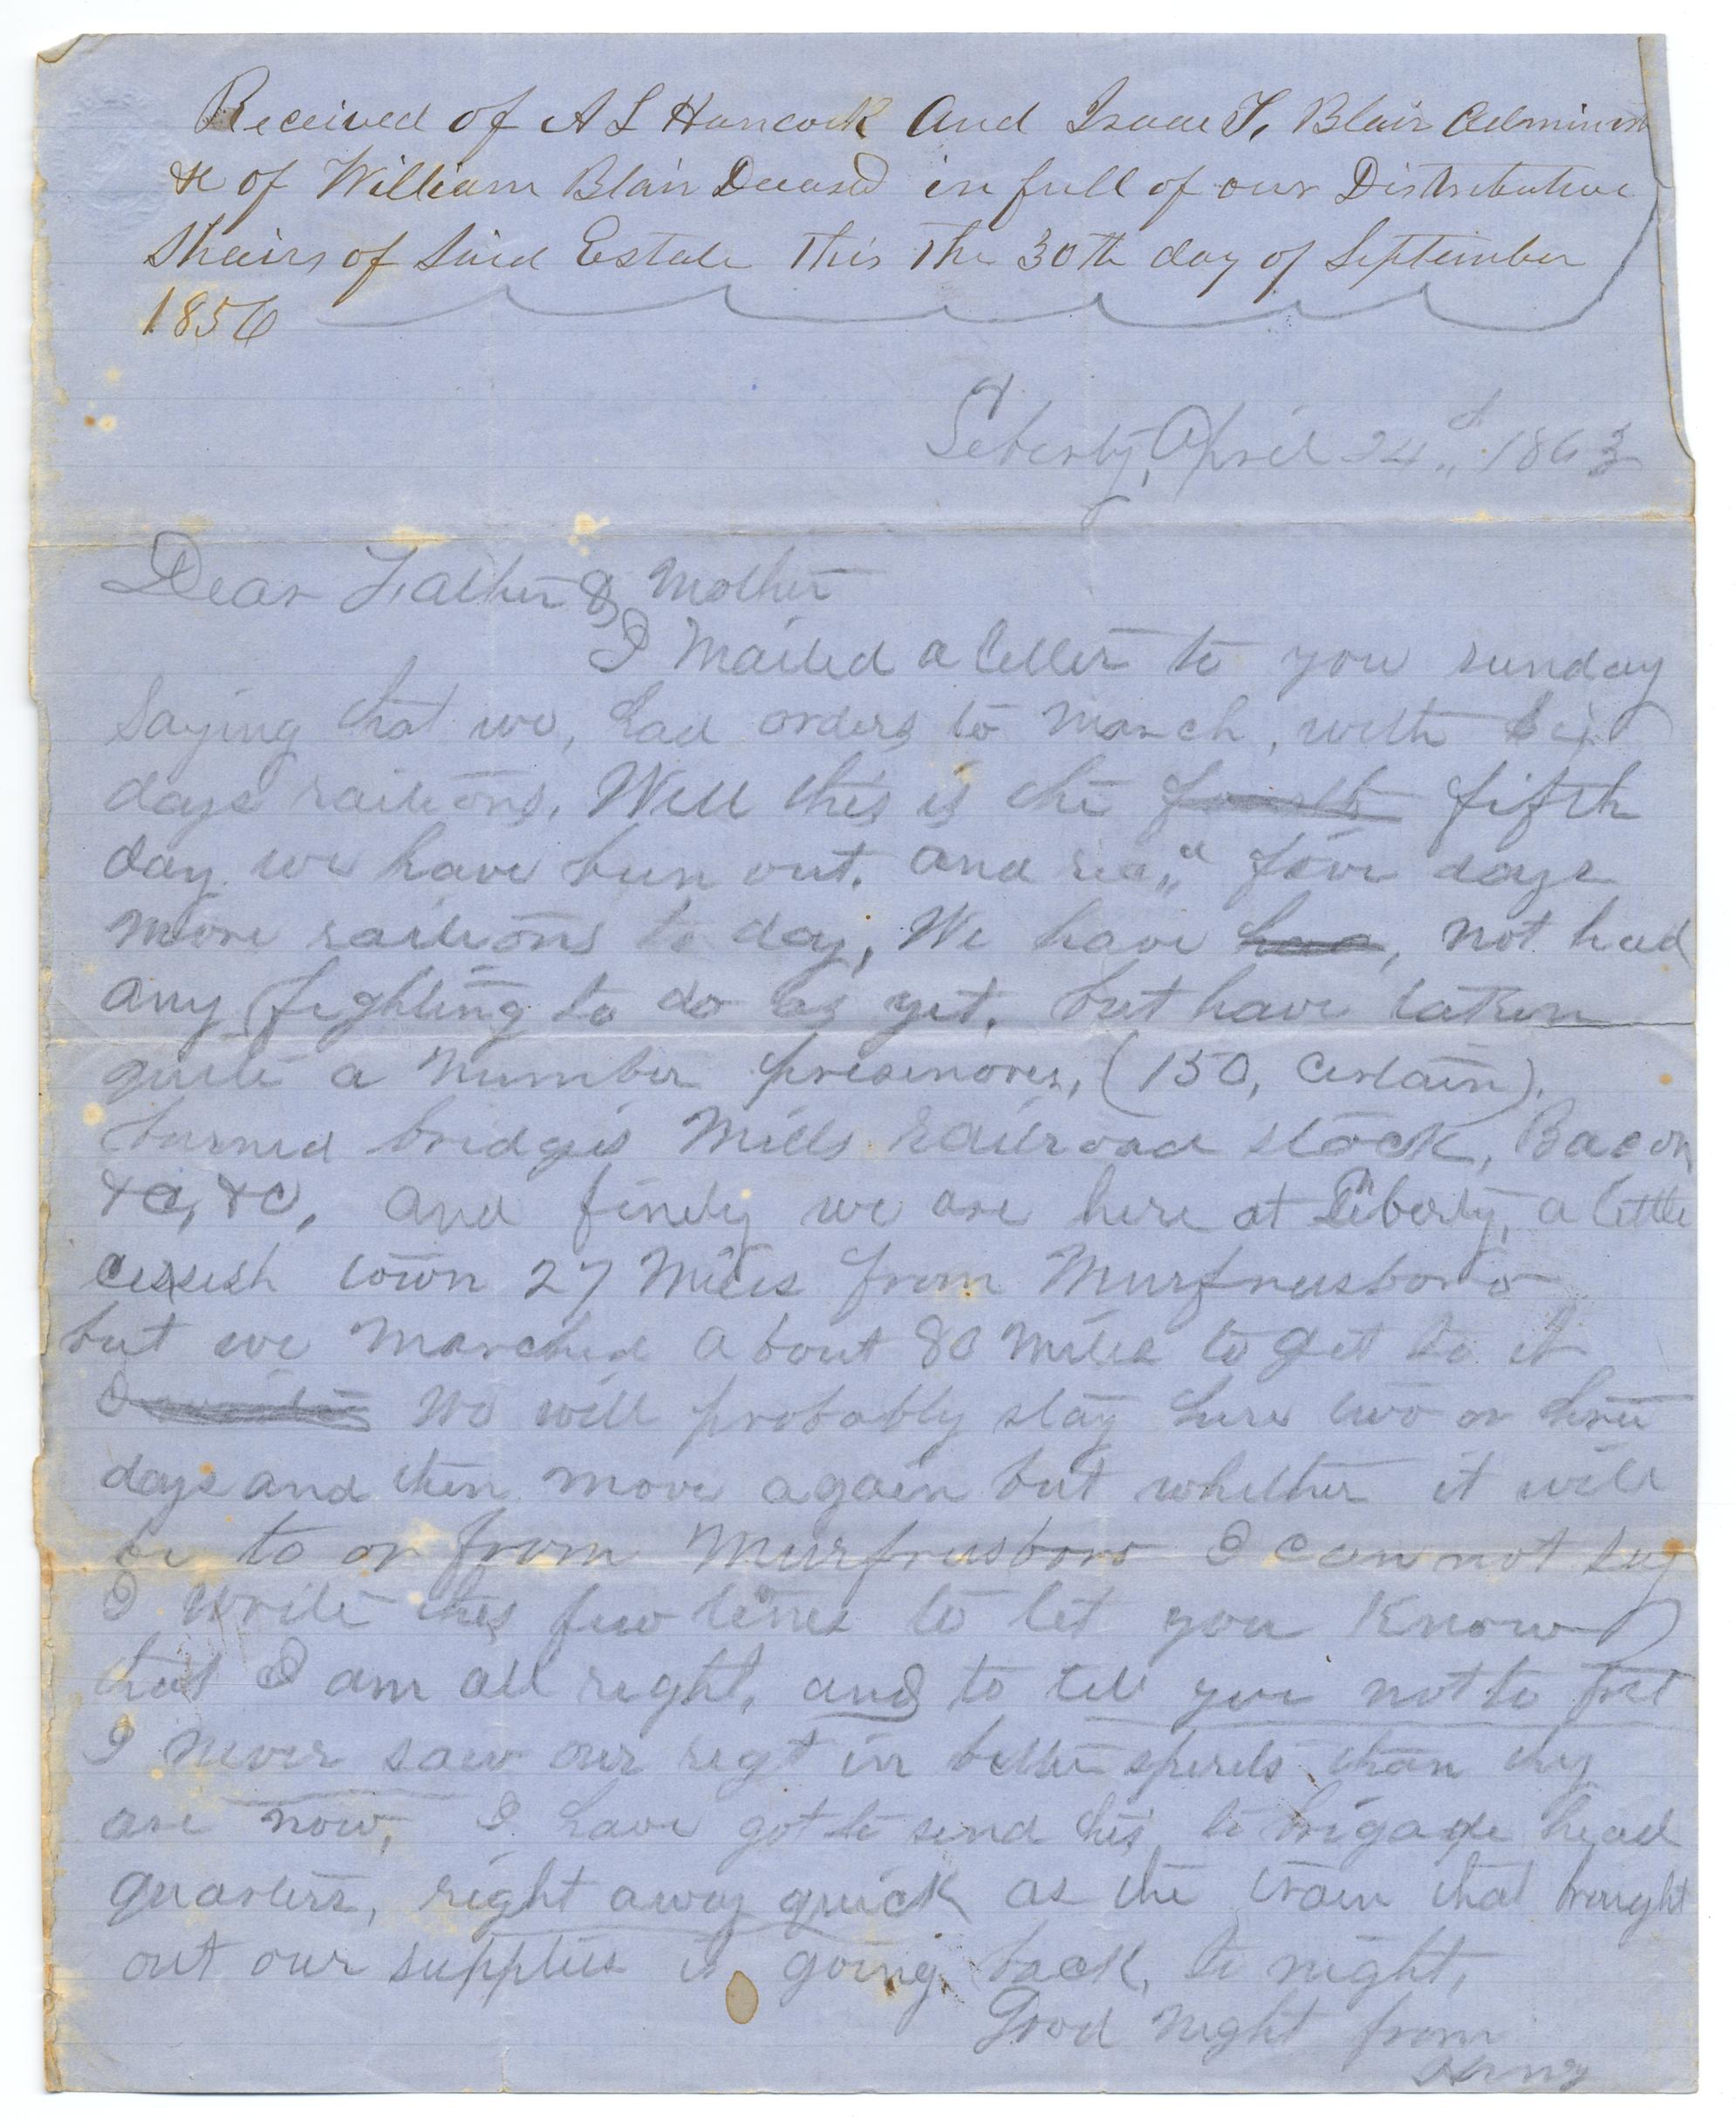 Received of A L Hancock And Isaac T. Blair Adminis
&c of William Blair Deceasd in full of our Distributive
Shairs of Said Estate This The 30th day of September
1856
Liberty, April 24th 1863
Dear Father & Mother
I Mailed a letter to you sunday
Saying that we, had orders to march, with six
days raitions, Well this is the fourth fifth
day we have bun out. and rec,,d four days
more raitions to day, We have had, not had
any fighting to do as yet, but have taken
quite a number prisenores, (150, certain).
burned bridges Mills railroad stock, Bacon
&C, &C, and finely we are here at Liberty, a little
cessesh town 27 Miles from Murfreesboro
but we marched about 80 Miles to get to it
We will probably stay here two or three
days and then move again but whether it will
be to or from Murfreesboro I can not say
I write thes few lines to let you Know
that I am all right, and to tell you not to fret
I never saw our regt in better spirits than they
are now, I have got to send this, to brigade head
quarters, right away quick as the train that brought
out our supplies is going back, to night,
Good night from
Henry